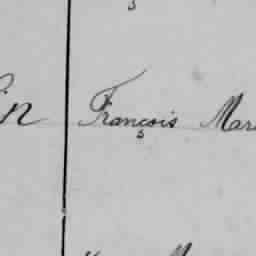 in François Mar